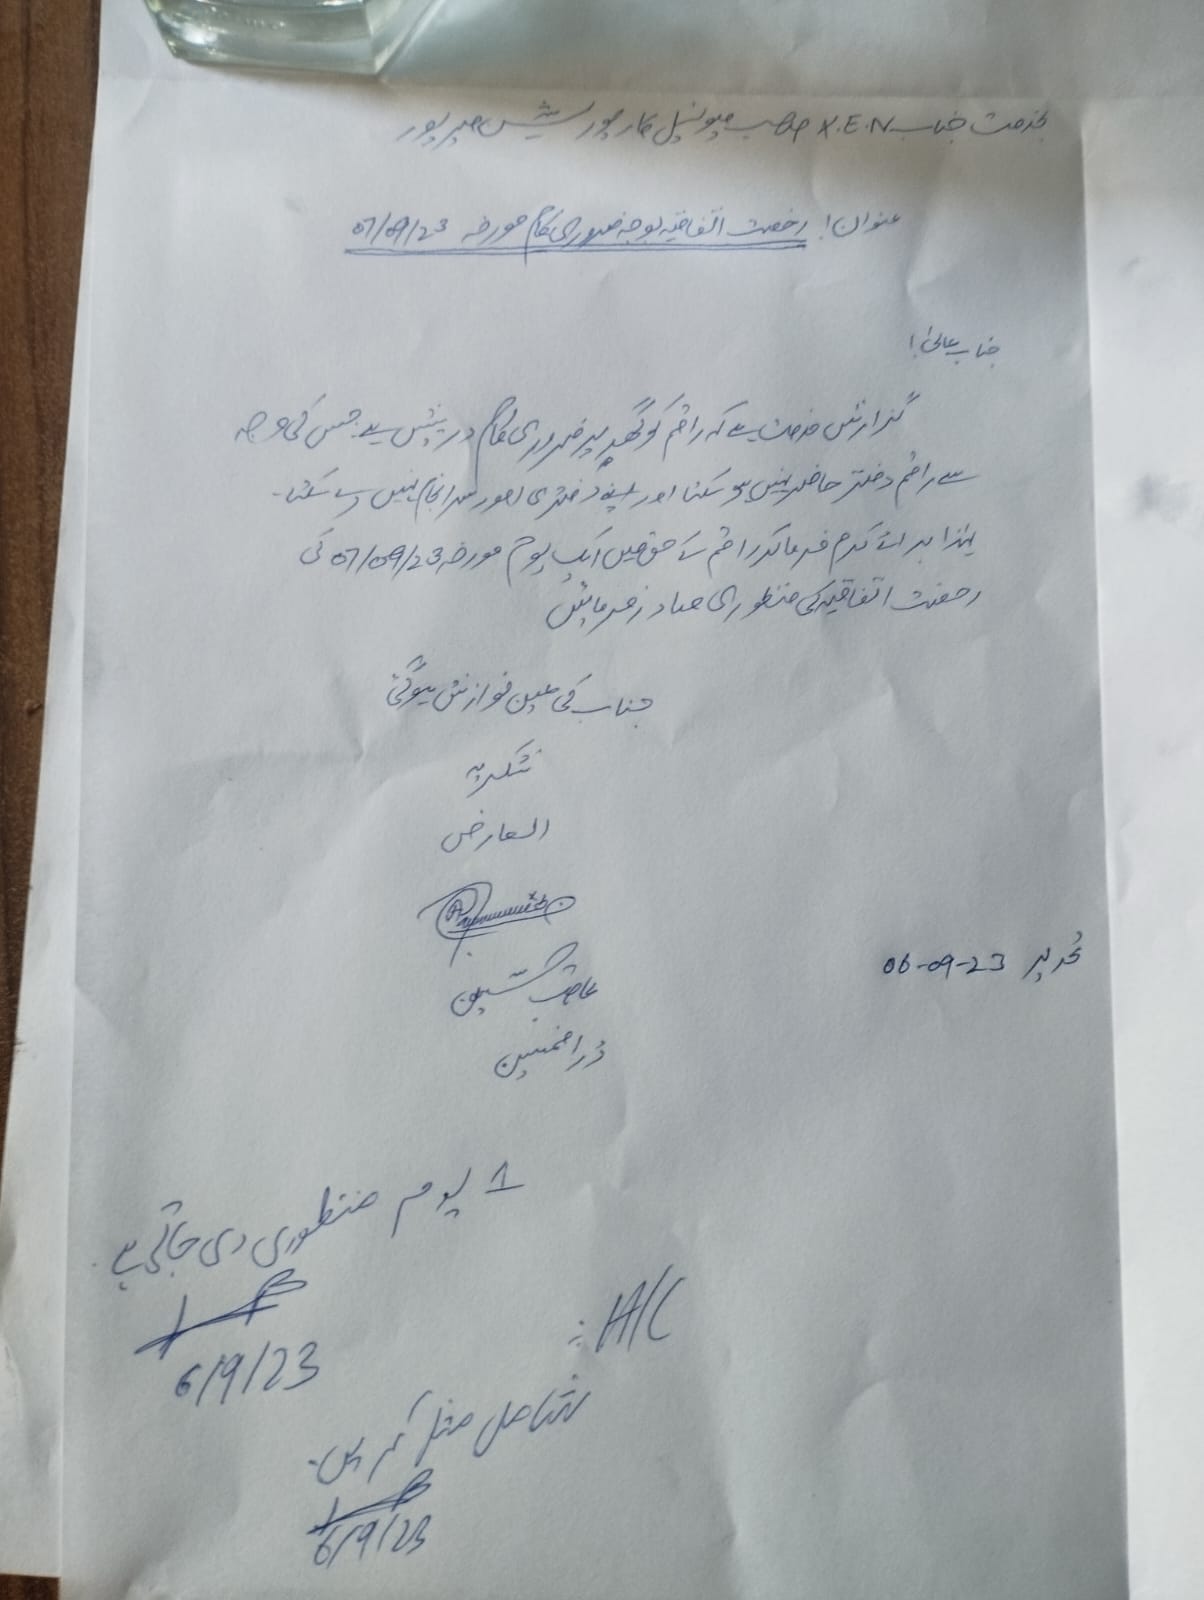 بخدمت جناب X.E.N صاحب میونسپل کارپوریشن میرپور
عنوان! رخصت اتفاقیہ بوجہ ضروری کام مورخہ 07/09/23
جناب عالیٰ!
گزارش خدمت ہے کہ راقم کو گھر پر ضروری کام درپیش ہے جس کی وجہ
سے راقم دفتر حاضر نہیں ہو سکتا اور اپنے دفتری امور سرانجام نہیں دے سکتا۔
لہذا برائے کرم فرما کر راقم کے حق میں ایک یوم مورخہ 07/09/23 کی
رخصت اتفاقیہ کی منظوری صادر فرمائیں
جناب کی عین نوازش ہوگی
شکریہ
العارض
عاصم حسین
ڈرافٹسمین
تحریر 06-09-23
1 یوم منظوری دی جاتی ہے۔
6/9/23
A/C :
شامل مثل کریں۔
6/9/23